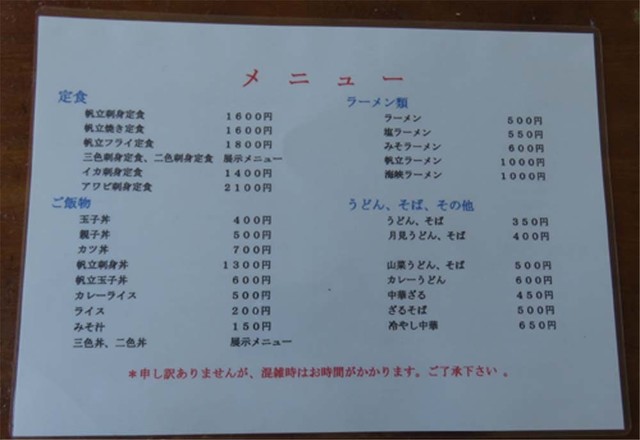 メニュー
定食
帆立刺身定食 1600円
帆立焼き定食 1600円
帆立フライ定食 1800円
三色刺身定食、二色刺身定食 展示メニュー
イカ刺身定食 1400円
アワビ刺身定食 2100円
ご飯物
玉子丼 400円
親子丼 500円
カツ丼 700円
帆立刺身丼 1300円
帆立玉子丼 600円
カレーライス 500円
ライス 200円
みそ汁 150円
三色丼、二色丼 展示メニュー
ラーメン類
ラーメン 500円
塩ラーメン 550円
みそラーメン 600円
帆立ラーメン 1000円
海峡ラーメン 1000円
うどん、そば、その他
うどん、そば 350円
月見うどん、そば 400円
山菜うどん、そば 500円
カレーうどん 600円
中華ざる 450円
ざるそば 500円
冷やし中華 650円
*申し訳ありませんが、混雑時はお時間がかかります。ご了承下さい 。